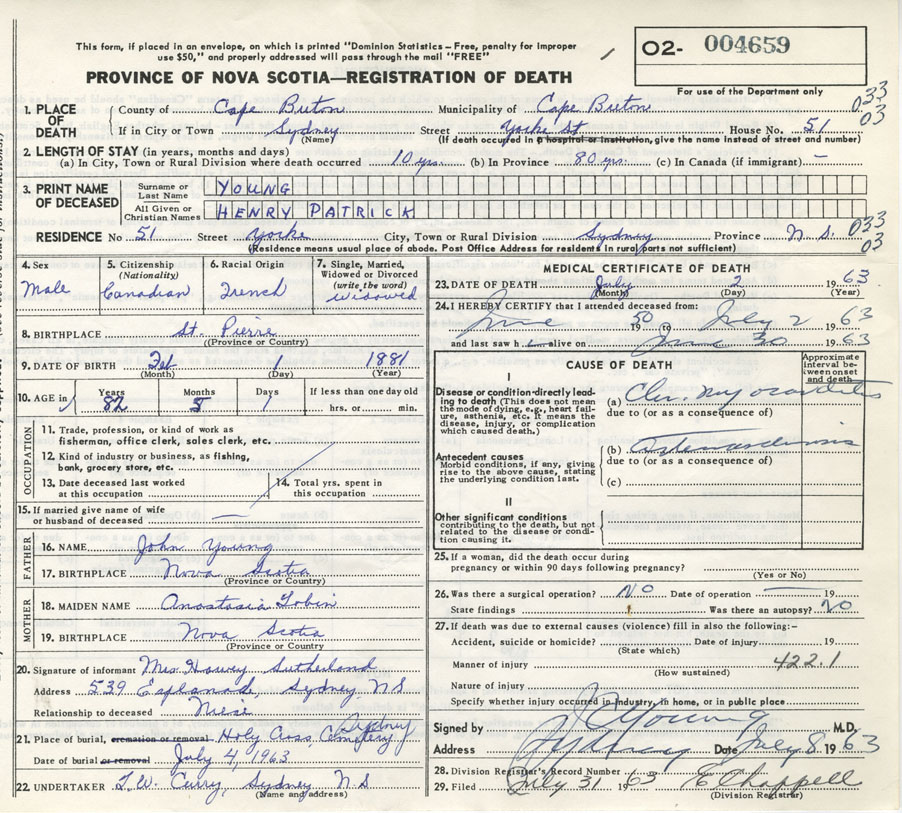 This form, if placed in an envelope, on which is printed "Dominion Statistics – Free, penalty for improper
use $50," and properly addressed will pass through the mail "FREE"
O2- 004659
For use of the Department only
PROVINCE OF NOVA SCOTIA—REGISTRATION OF DEATH
1. PLACE OF DEATH County of Cape Breton Municipality of Cape Breton 033
If in City or Town Sydney Street Yorke St House No. 51 03
(Name) (If death occurred in a hospital or institution, give the name instead of street and number)
2. LENGTH OF STAY (in years, months and days)
(a) In City, Town or Rural Division where death occurred 10 yrs. (b) In Province 80 yrs. (c) In Canada (if immigrant) —
3. PRINT NAME OF DECEASED Surname or Last Name YOUNG
All Given or Christian Names HENRY PATRICK
RESIDENCE No 51 Street Yorke City, Town or Rural Division Sydney Province N. S. 033
(Residence means usual place of abode. Post Office Address for residents in rural parts not sufficient) 03
4. Sex
Male
5. Citizenship
(Nationality)
Canadian
6. Racial Origin
French
7. Single, Married,
Widowed or Divorced
(write the word)
widowed
8. BIRTHPLACE St. Pierre
(Province or Country)
9. DATE OF BIRTH Feb 1 1881
(Month) (Day) (Year)
10. AGE in Years Months Days If less than one day old
82 5 1 hrs. or min.
OCCUPATION
11. Trade, profession, or kind of work as
fisherman, office clerk, sales clerk, etc.
12. Kind of industry or business, as fishing,
bank, grocery store, etc.
13. Date deceased last worked
at this occupation
14. Total yrs. spent in
this occupation
15. If married give name of wife
or husband of deceased —
FATHER
16. NAME John Young
17. BIRTHPLACE Nova Scotia
(Province or Country)
MOTHER
18. MAIDEN NAME Anastasia Tobin
19. BIRTHPLACE Nova Scotia
(Province or Country)
20. Signature of informant Mrs Harvey Sutherland
Address 539 Esplanade, Sydney, NS
Relationship to deceased Niese
21. Place of burial, cremation or removal Holy Cross, Cemetery Sydney
Date of burial or removal July 4, 1963
22. UNDERTAKER T.W. Curry, Sydney N S
(Name and address)
MEDICAL CERTIFICATE OF DEATH
23. DATE OF DEATH July 2 1963
(Month) (Day) (Year)
24. I HEREBY CERTIFY that I attended deceased from:
June 1950 to July 2 1963
and last saw h alive on June 30 1963
CAUSE OF DEATH
Approximate
interval be-
tween onset
and death
I
Disease or condition directly lead-
ing to death (This does not mean
the mode of dying, e.g., heart failure,
asthenia, etc. It means the
disease, injury, or complication
which caused death.)
(a) Chr. myocarditis
due to (or as a consequence of)
Antecedent causes
Morbid conditions, if any, giving
rise to the above cause, stating
the underlying condition last.
(b)
due to (or as a consequence of)
(c)
II
Other significant conditions
contributing to the death, but not
related to the disease or condi-
tion causing it.
25. If a woman, did the death occur during
pregnancy or within 90 days following pregnancy?
(Yes or No)
26. Was there a surgical operation? NO Date of operation — 19
State findings Was there an autopsy? NO
27. If death was due to external causes (violence) fill in also the following:-
Accident, suicide or homicide? Date of injury 19
(State which)
Manner of injury 422.1
(How sustained)
Nature of injury
Specify whether injury occurred in industry, in home, or in public place
Signed by Young M.D.
Address Sydney Date July 8 1963
28. Division Registrar's Record Number
29. Filed July 31 1963 E Chappell
(Division Registrar)